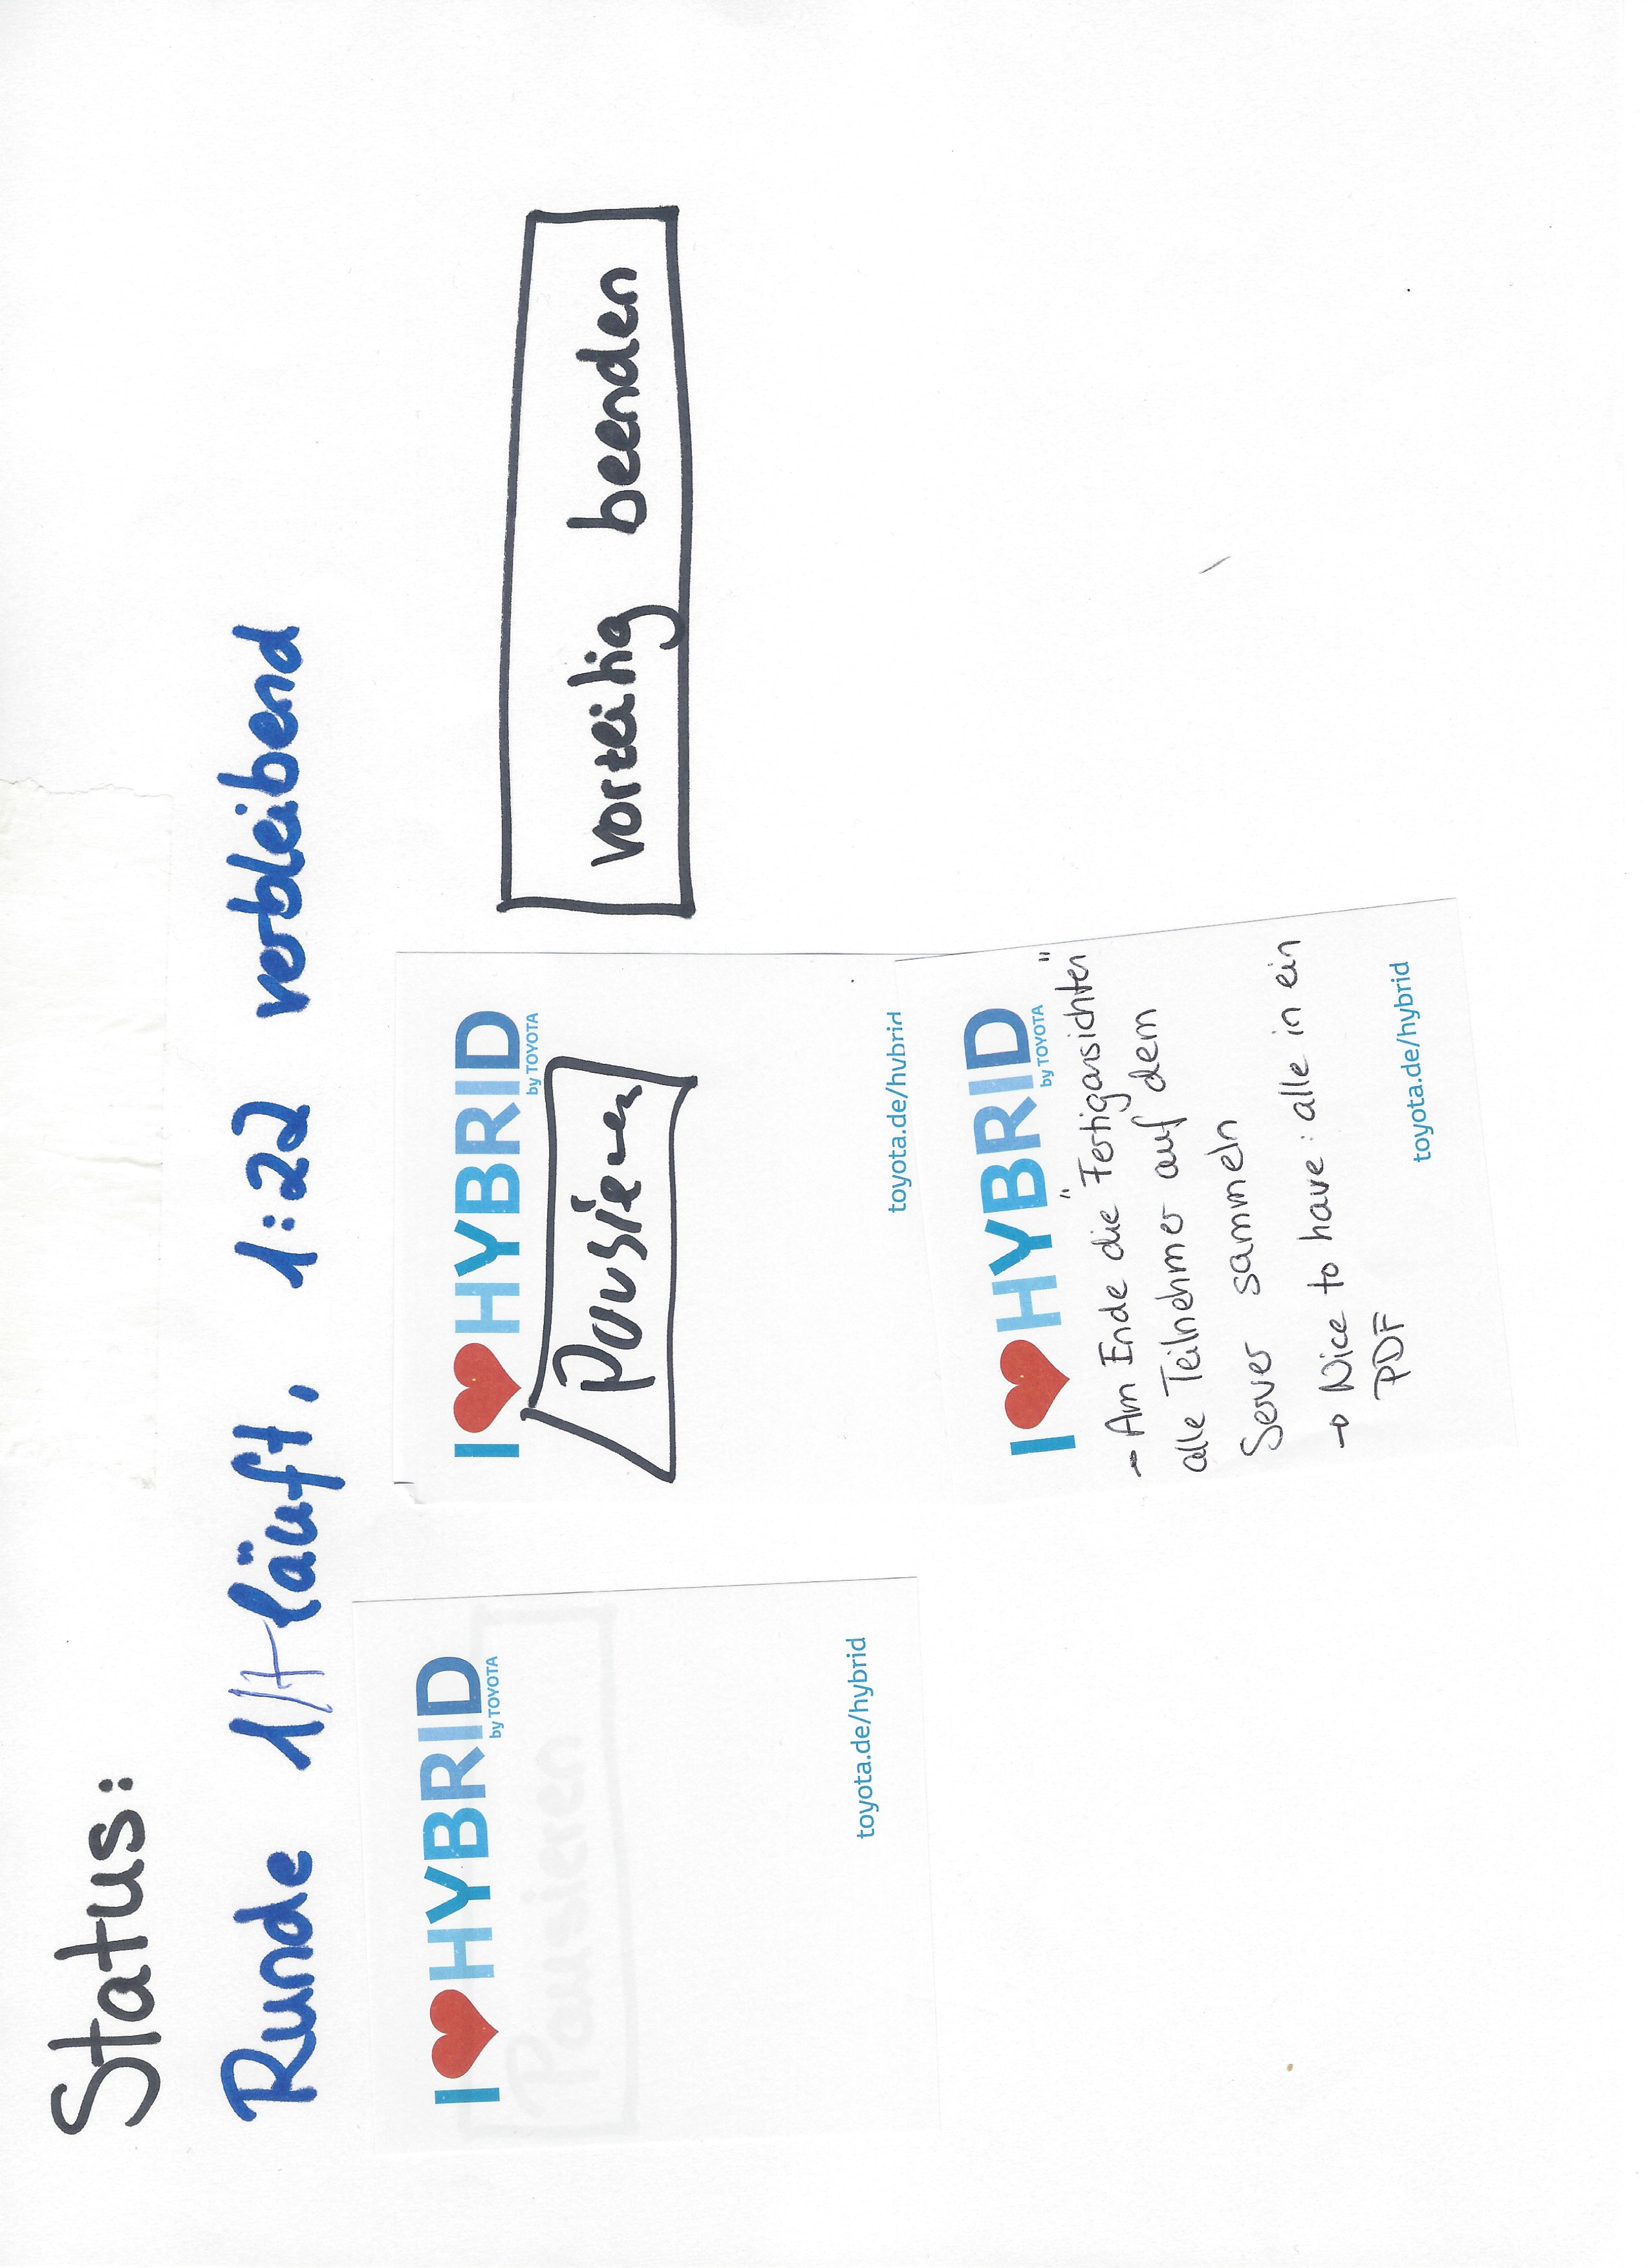 Status:
Runde 1/7 läuft, 1:22 verbleibend
I ❤ HYBRID
by TOYOTA
Pausieren
toyota.de/hybrid
I ❤ HYBRID
by TOYOTA
Pausieren
toyota.de/hybrid
vorzeitig beenden
I ❤ HYBRID
by TOYOTA
- Am Ende die "Fertigansichten"
alle Teilnehmer auf dem
Server sammeln
→ Nice to have: alle in ein
PDF
toyota.de/hybrid